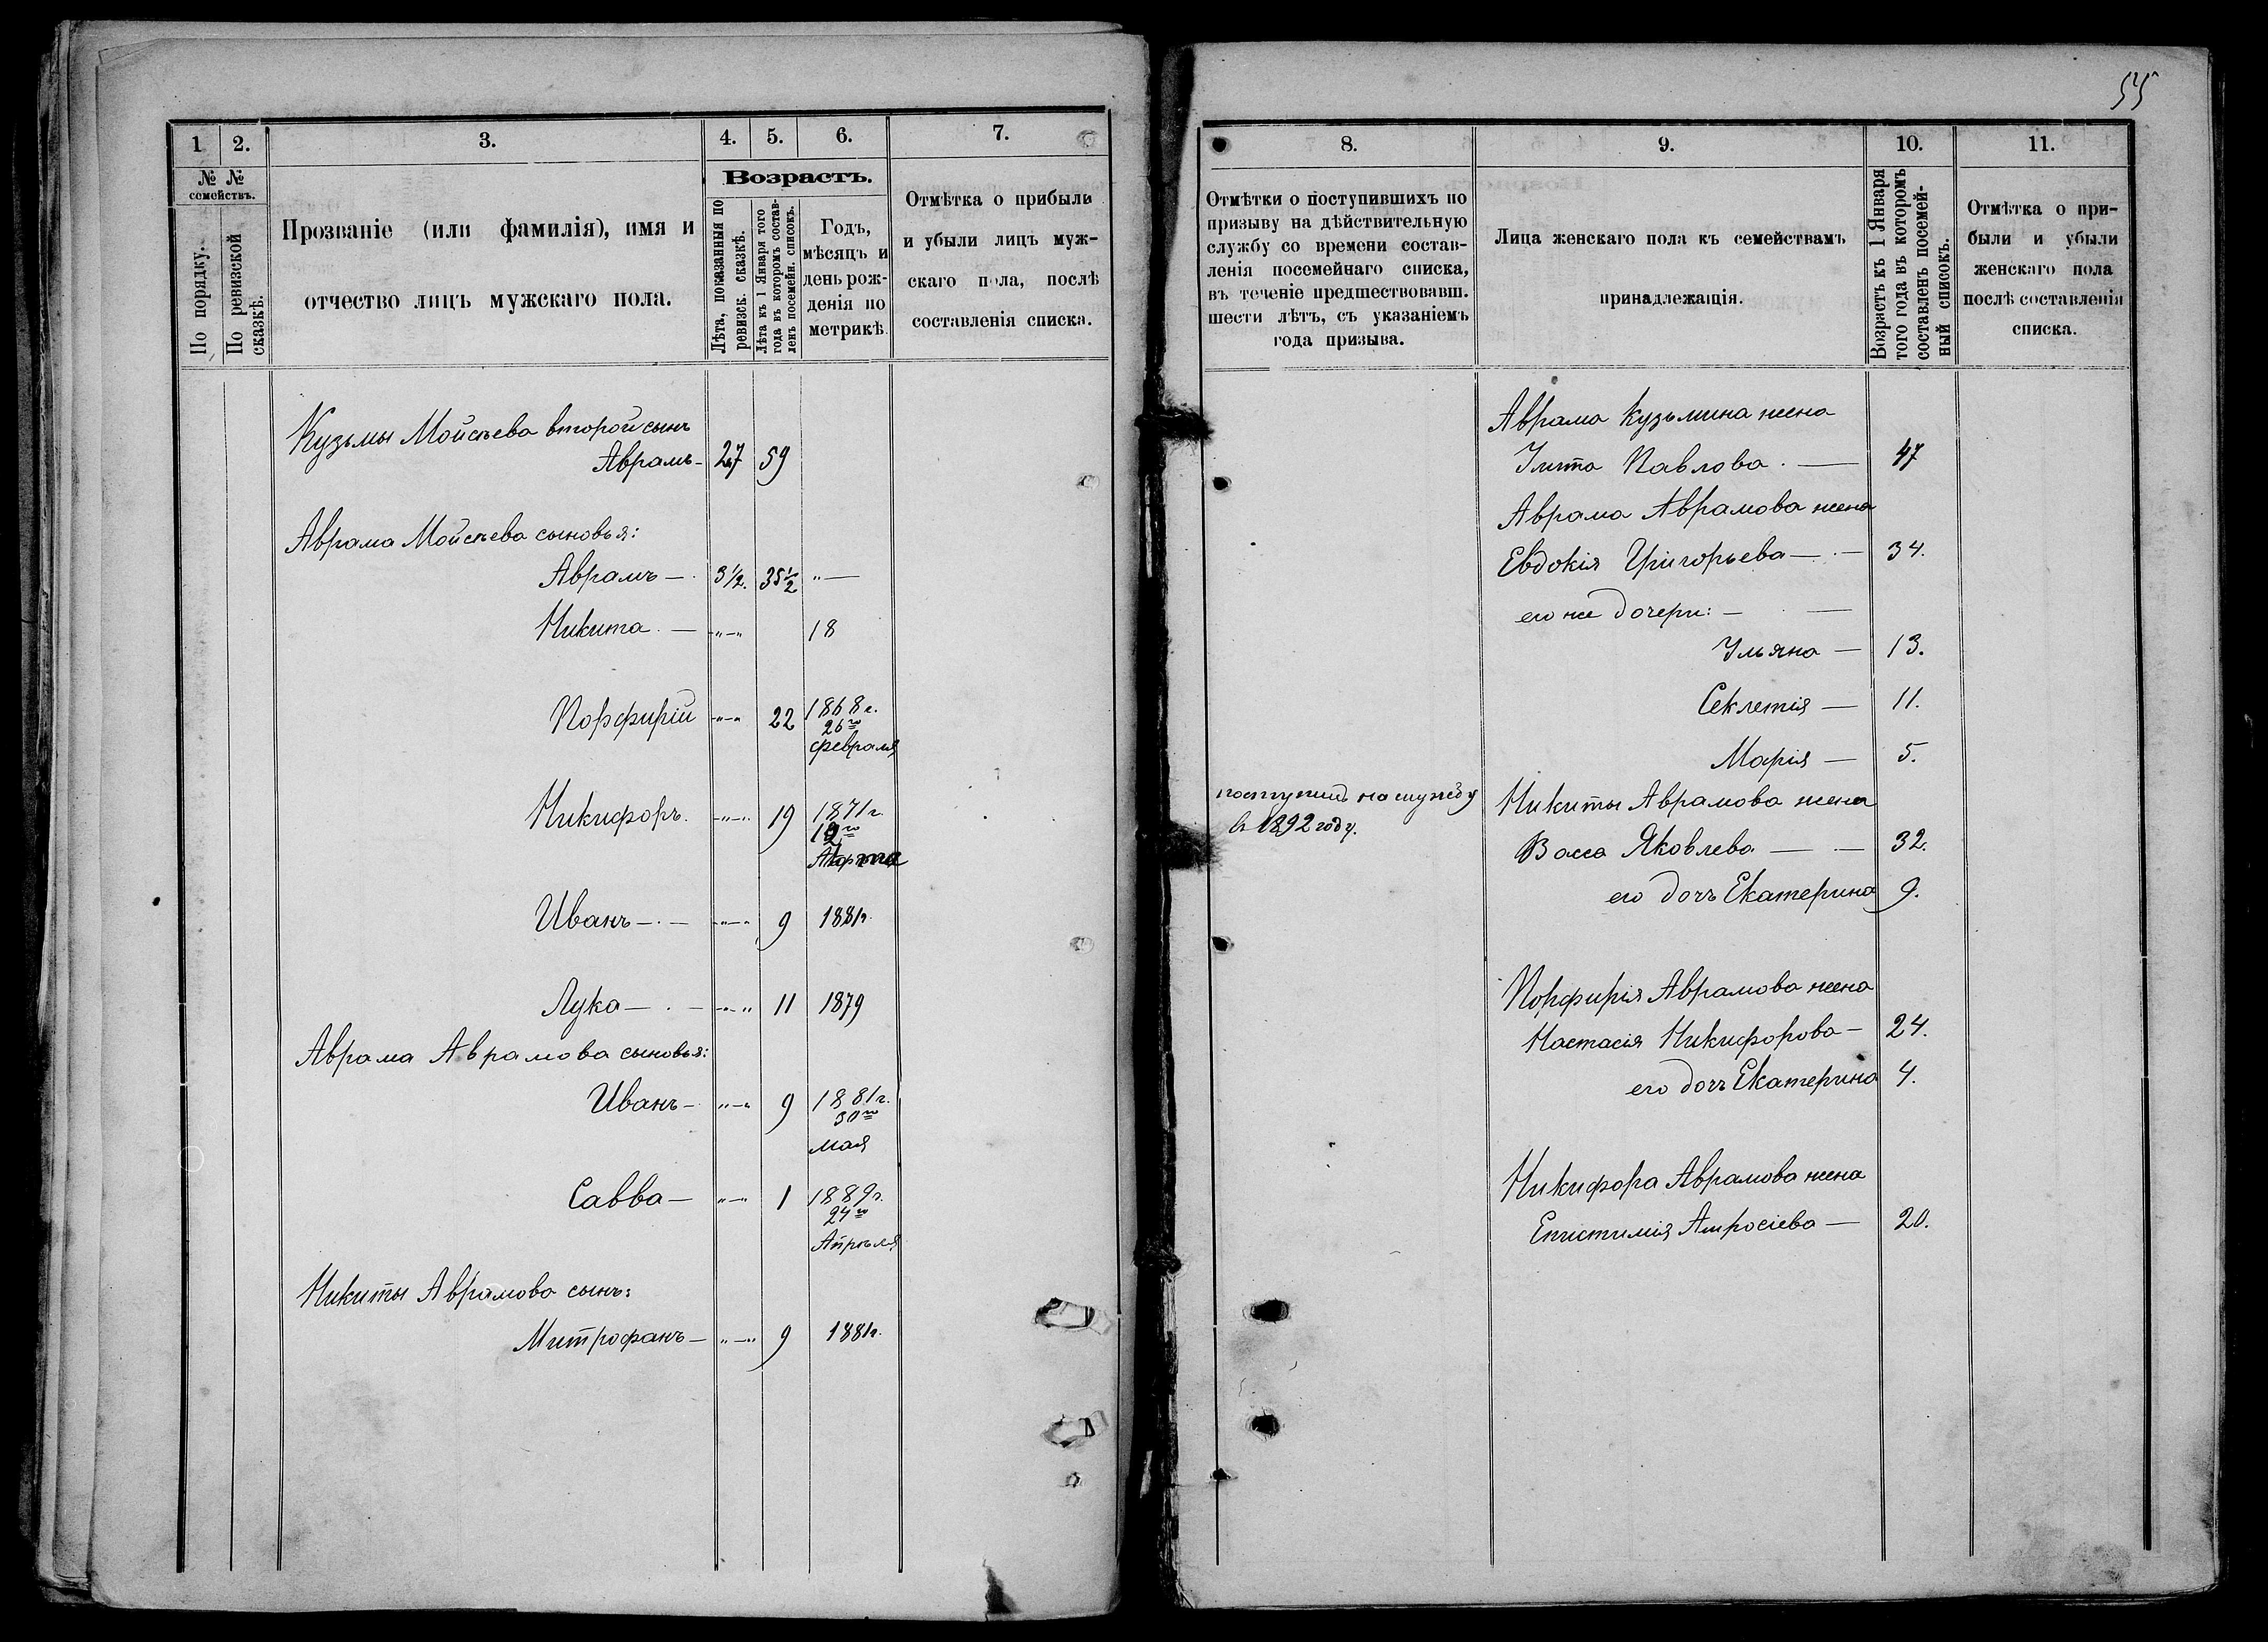 55
1
2.
3.
4.
5.
6.
7.
№ №
семействъ.
По порядку.
По ревизской
сказкѣ.
Прозваніе (или фамилія), имя и
отчество лицъ мужскаго пола.
Возрастъ.
Лѣта, показанныя по
ревизск. сказкѣ.
Лѣта къ 1 Января того
года въ которомъ состав-
ленъ посемейн. списокъ.
Годъ,
мѣсяцъ и
день рож-
денія по
метрикѣ.
Отмѣтка о прибыли
и убыли лицъ муж-
скаго пола, послѣ
составленія списка.
Кузьмы Мойсѣева второй сынъ
Аврамъ- 27 59
Аврама Мойсѣева сыновья:
Аврамъ — 3 1/2. 35 1/2 „—
Никита. — -„-„ 18
Порфирій -„-„ 22 1868 г.
26го
февраля
Никифоръ. -„-„ 19 1871 г.
19го
Иванъ -.- -„-„ 9 1881г.
Лука — . — -„-„ 11 1879
Аврама Аврамова сыновья:
Иванъ - „-„ 9 1881г.
30го
мая
Савва — „-„ 1 1889г.
24го
Апрѣля
Никиты Аврамова сынъ:
Митрофанъ — „-„ 9 1881г.
8.
9.
10.
11.
Отмѣтки о поступившихъ по
призыву на дѣйствительную
службу со времени состав-
ленія посемейнаго списка,
въ теченіе предшествовавш.
шести лѣтъ, съ указаніемъ
года призыва.
Лица женскаго пола къ семействамъ
принадлежащія.
Возрастъ къ 1 Января
того года въ которомъ
составленъ посемей-
ный списокъ.
Отмѣтка о при-
были и убыли
женскаго пола
послѣ составленія
списка.
Аврама Кузьмина жена
Павлова. — 47
Аврама Аврамова жена
Евдокія Григорьева — . — 34.
его же дочери: — —
Ульяна — 13.
Секлетія — 11.
Марія — 5.
поступилъ на службу
в 1892 году.
Никиты Аврамова жена
Васса Яковлева — . — 32.
его дочъ Екатерина 9.
Порфирія Аврамова жена
Настасія Никифорова — 24.
его дочъ Екатерина 4.
Никифора Аврамова жена
Епистимія Амросіева — 20.